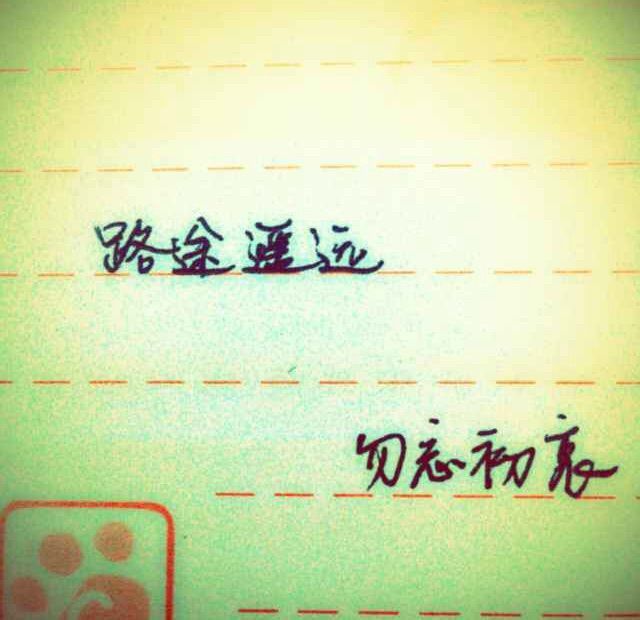 路途遥远
勿忘初衷